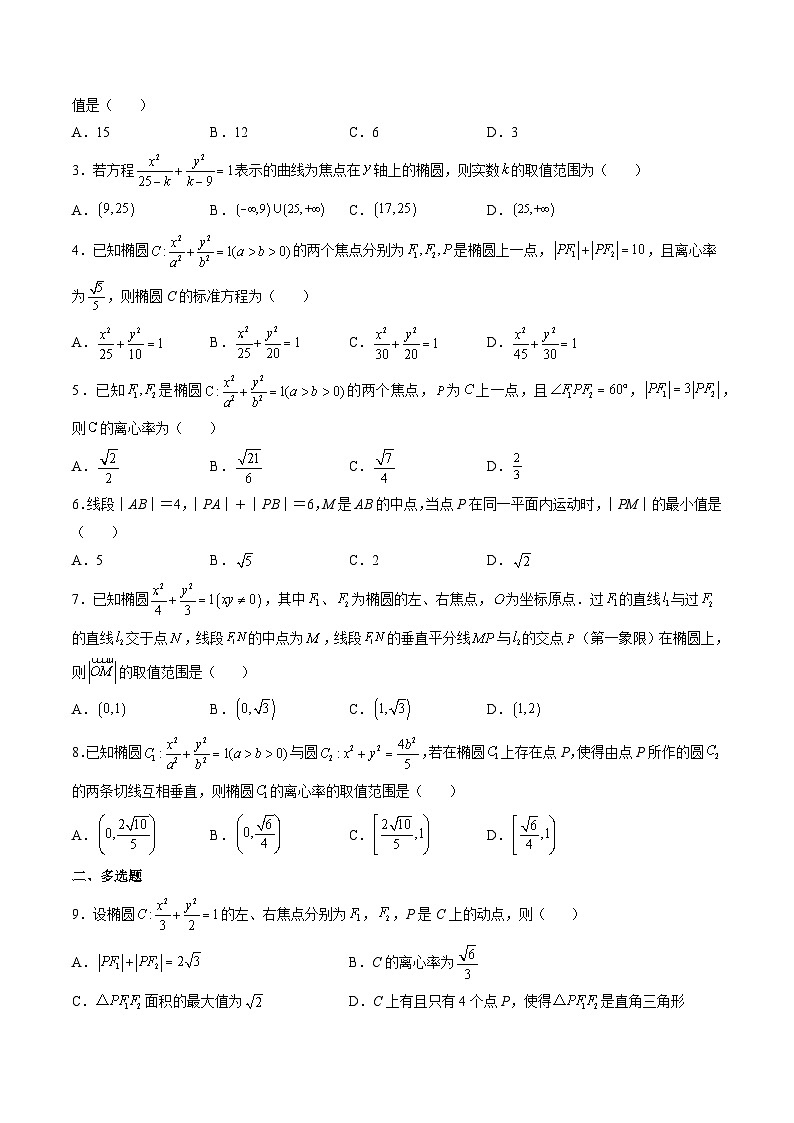 值是（　　）
A．15　B．12　C．6　D．3
3．若方程 $\frac{x^2}{25-k}+\frac{y^2}{k-9}=1$ 表示的曲线为焦点在 $y$ 轴上的椭圆，则实数 $k$ 的取值范围为（　　）
A．$(9,25)$　B．$(-\infty,9)\cup(25,+\infty)$　C．$(17,25)$　D．$(25,+\infty)$
4．已知椭圆 $C:\frac{x^2}{a^2}+\frac{y^2}{b^2}=1(a>b>0)$ 的两个焦点分别为 $F_1,F_2,P$ 是椭圆上一点，$|PF_1|+|PF_2|=10$，且离心率
为 $\frac{\sqrt{5}}{5}$，则椭圆 C 的标准方程为（　　）
A．$\frac{x^2}{25}+\frac{y^2}{10}=1$　B．$\frac{x^2}{25}+\frac{y^2}{20}=1$　C．$\frac{x^2}{30}+\frac{y^2}{20}=1$　D．$\frac{x^2}{45}+\frac{y^2}{30}=1$
5．已知 $F_1,F_2$ 是椭圆 $C:\frac{x^2}{a^2}+\frac{y^2}{b^2}=1(a>b>0)$ 的两个焦点，$P$ 为 $C$ 上一点，且 $\angle F_1PF_2=60°$，$|PF_1|=3|PF_2|$，
则 C 的离心率为（　　）
A．$\frac{\sqrt{2}}{2}$　B．$\frac{\sqrt{21}}{6}$　C．$\frac{\sqrt{7}}{4}$　D．$\frac{2}{3}$
6．线段｜AB｜＝4，｜PA｜＋｜PB｜＝6，M 是 AB 的中点，当点 P 在同一平面内运动时，｜PM｜的最小值是
（　　）
A．5　B．$\sqrt{5}$　C．2　D．$\sqrt{2}$
7．已知椭圆 $\frac{x^2}{4}+\frac{y^2}{3}=1(xy\neq 0)$，其中 $F_1$、$F_2$ 为椭圆的左、右焦点，$O$ 为坐标原点．过 $F_1$ 的直线 $l_1$ 与过 $F_2$
的直线 $l_2$ 交于点 $N$，线段 $F_1N$ 的中点为 $M$，线段 $F_1N$ 的垂直平分线 $MP$ 与 $l_2$ 的交点 $P$（第一象限）在椭圆上，
则 $|\overrightarrow{OM}|$ 的取值范围是（　　）
A．$(0,1)$　B．$(0,\sqrt{3})$　C．$(1,\sqrt{3})$　D．$(1,2)$
8．已知椭圆 $C_1:\frac{x^2}{a^2}+\frac{y^2}{b^2}=1(a>b>0)$ 与圆 $C_2:x^2+y^2=\frac{4b^2}{5}$，若在椭圆 $C_1$ 上存在点 P，使得由点 P 所作的圆 $C_2$
的两条切线互相垂直，则椭圆 $C_1$ 的离心率的取值范围是（　　）
A．$\left(0,\frac{2\sqrt{10}}{5}\right)$　B．$\left(0,\frac{\sqrt{6}}{4}\right)$　C．$\left[\frac{2\sqrt{10}}{5},1\right)$　D．$\left[\frac{\sqrt{6}}{4},1\right)$
二、多选题
9．设椭圆 $C:\frac{x^2}{3}+\frac{y^2}{2}=1$ 的左、右焦点分别为 $F_1$，$F_2$，P 是 C 上的动点，则（　　）
A．$|PF_1|+|PF_2|=2\sqrt{3}$　B．C 的离心率为 $\frac{\sqrt{6}}{3}$
C．$\triangle PF_1F_2$ 面积的最大值为 $\sqrt{2}$　D．C 上有且只有 4 个点 P，使得 $\triangle PF_1F_2$ 是直角三角形